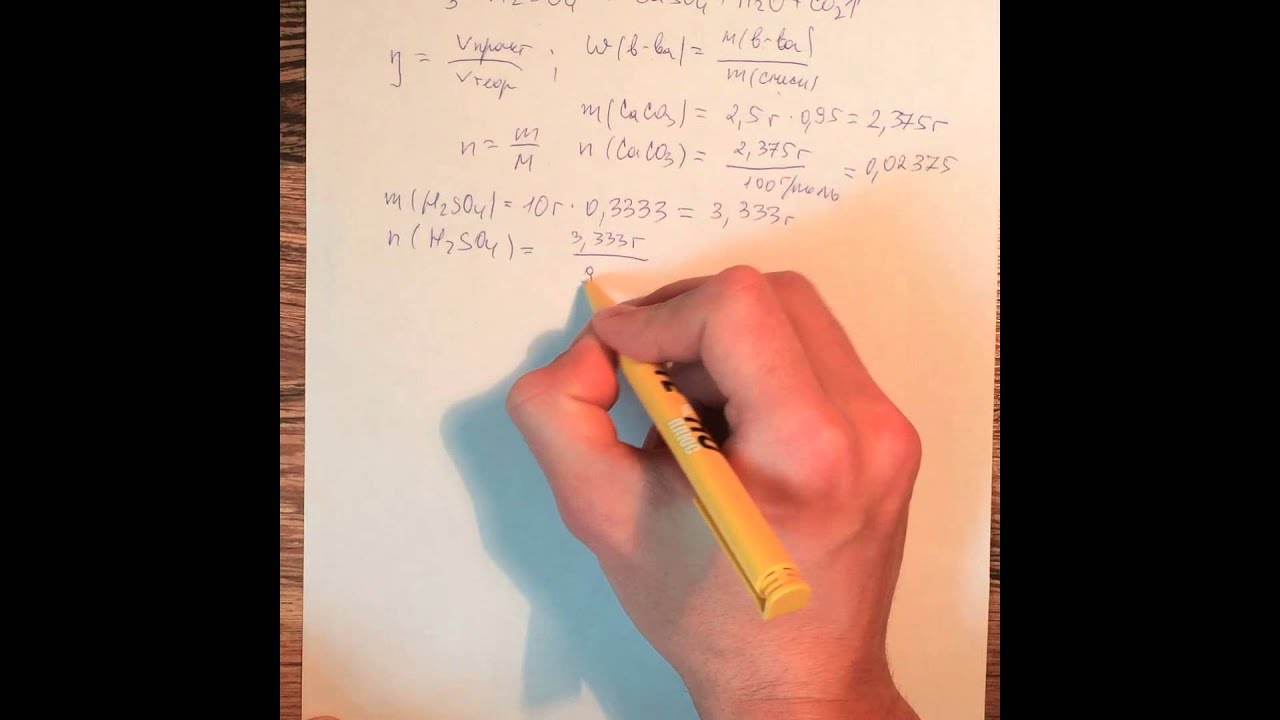 3 H₂SO₄ CaSO₄ + H₂O + CO₂↑
η = Vпракт / Vтеор ; W(в-ва) = m(в-ва) / m(смеси)
m(CaCO₃) = 2,5г · 0,95 = 2,375г
n = m / M n(CaCO₃) = 2,375г / 100г/моль = 0,02375
m(H₂SO₄) = 10г · 0,3333 = 3,333г
n(H₂SO₄) = 3,333г / 9